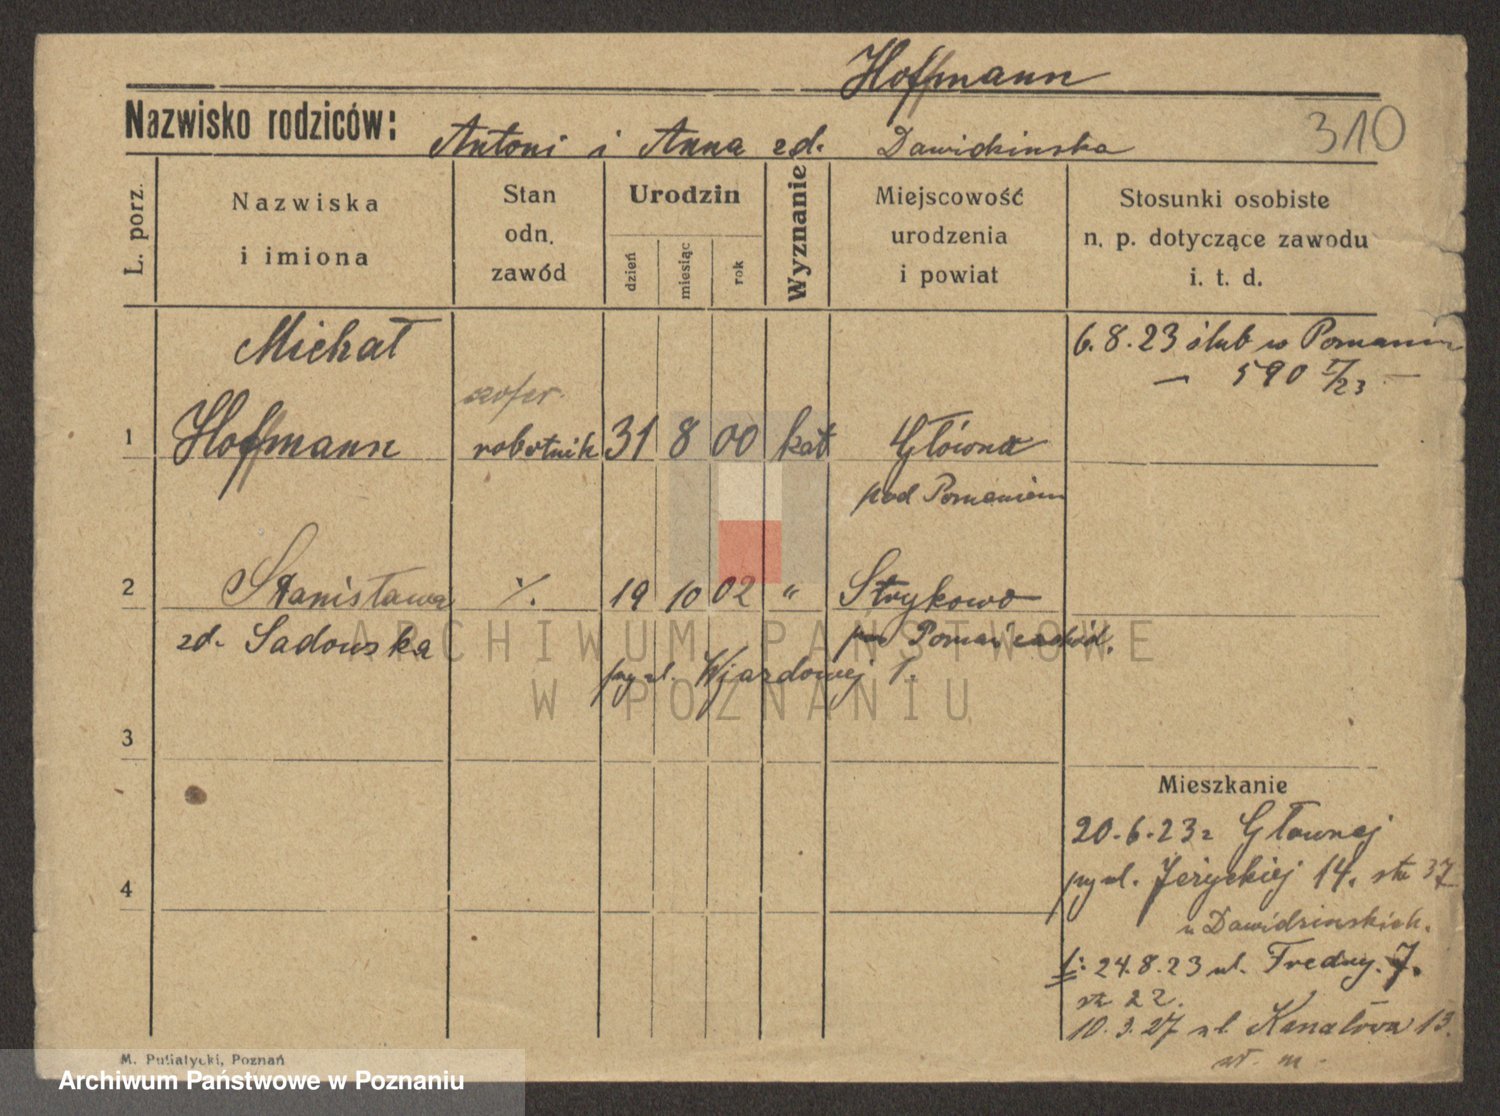 Hoffmann
Nazwisko rodziców:
Antoni i Anna zd. Dawidzinska
310
L. porz.
Nazwiska
i imiona
Stan
odn.
zawód
Urodzin
dzień
miesiąc
rok
Wyznanie
Miejscowość
urodzenia
i powiat
Stosunki osobiste
n. p. dotyczące zawodu
i. t. d.
Michał
6. 8. 23 ślub w Poznaniu
— 590 I/23 —
szofer
1 Hoffmann robotnik 31 8 00 kat Główna
pod Poznaniem
2 Stanisława ./. 19 10 02 " Strykowo
zd. Sadowska
pow Poznań zachód.
przy ul. Wjazdowej 1.
ARCHIWUM PAŃSTWOWE
W POZNANIU
3
Mieszkanie
20.6.23 z Głównej
przy ul. Jeżyckiej 14. str 37
u Dawidzinskich.
4
1: 24.8.23 ul. Fredry. 7.
str 22.
10. 3. 27 ul. Kanałowa 13.
M. Putiatycki, Poznań
Archiwum Państwowe w Poznaniu